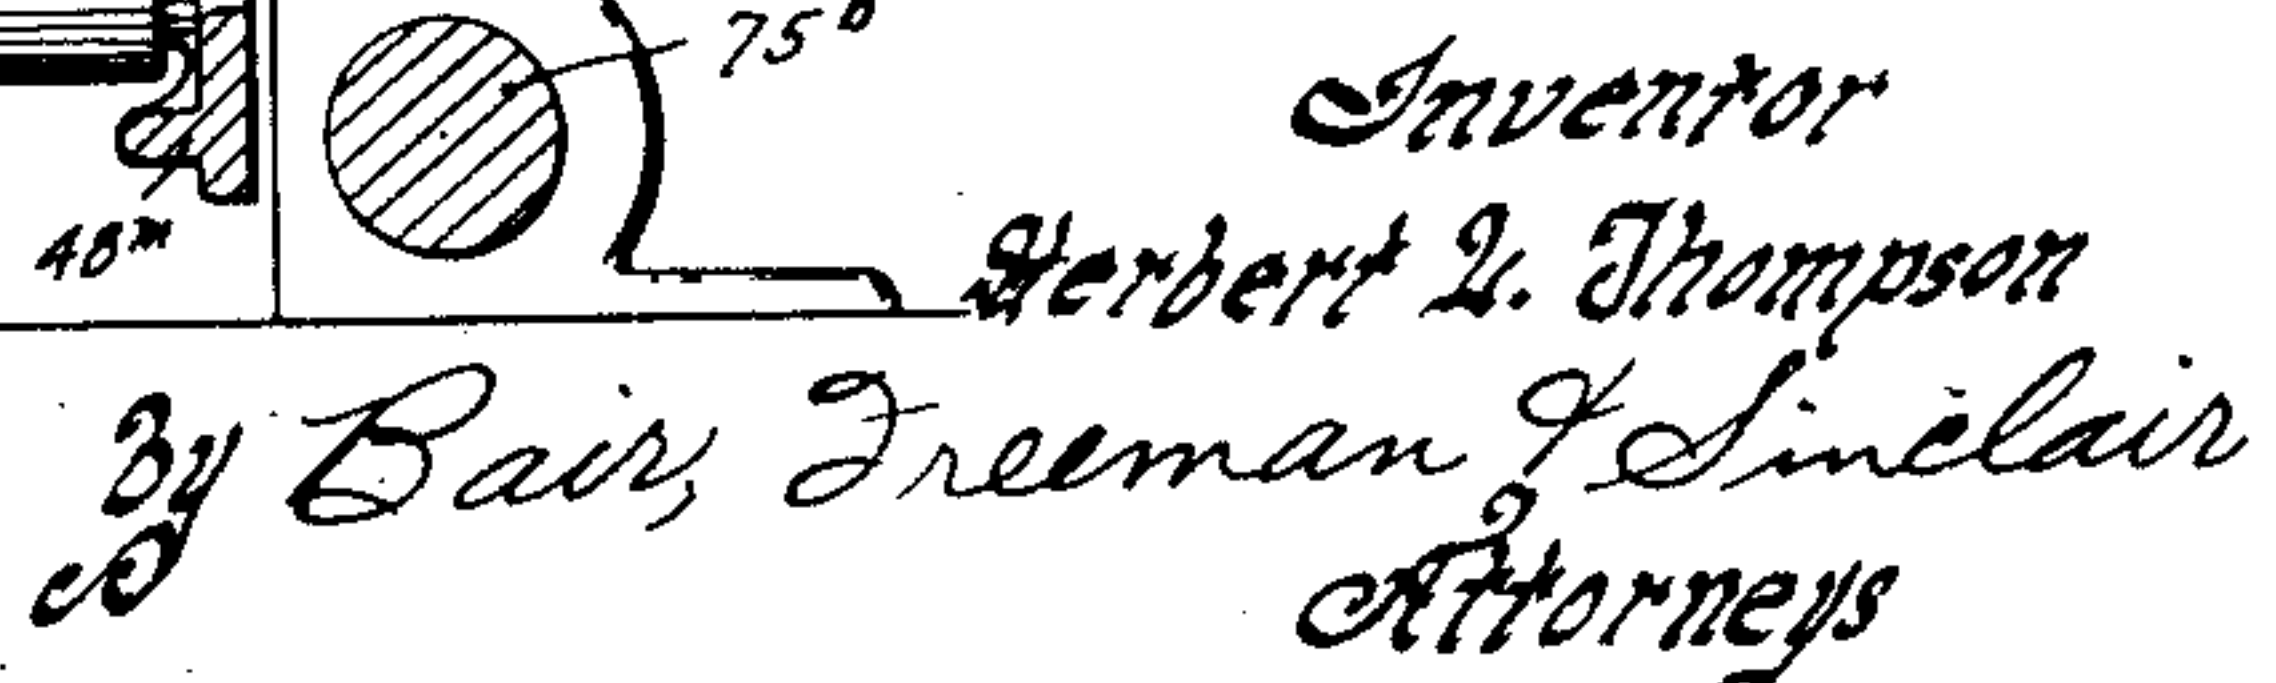 75ᴰ
Inventor
48ᵐ
Herbert L. Thompson
By Bair, Freeman & Sinclair
Attorneys